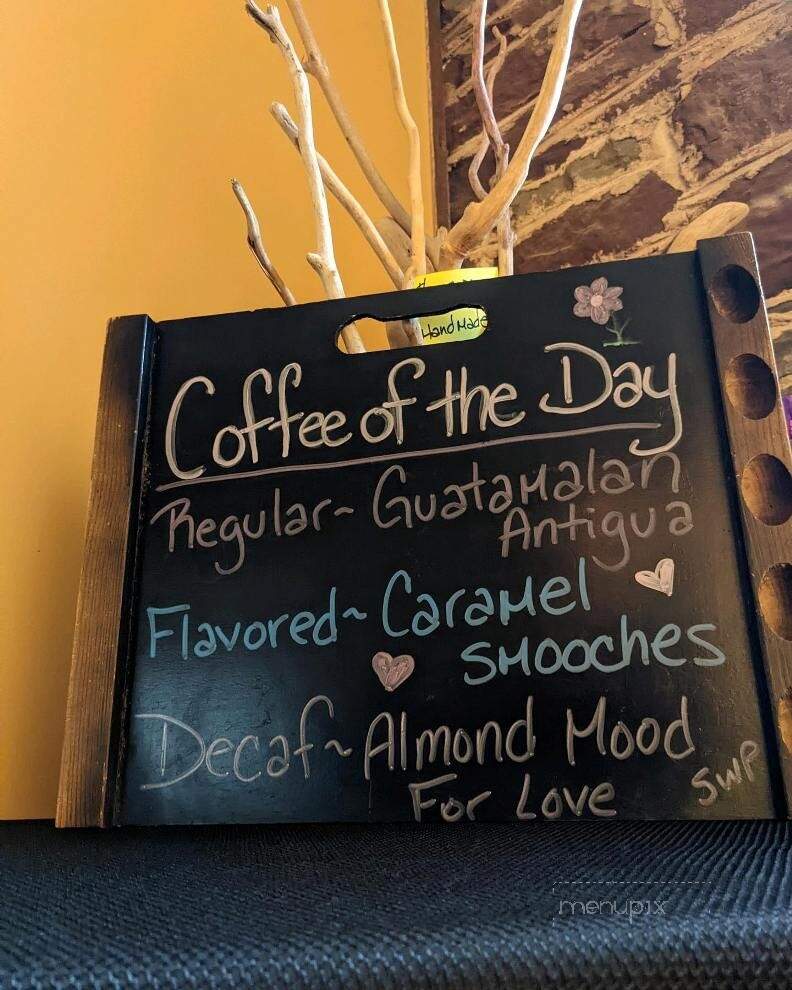 Handmade
Coffee of the Day
Regular~ Guatamalan
Antigua
Flavored~ Caramel
Smooches
Decaf~ Almond Mood
For Love
SWP
menupix